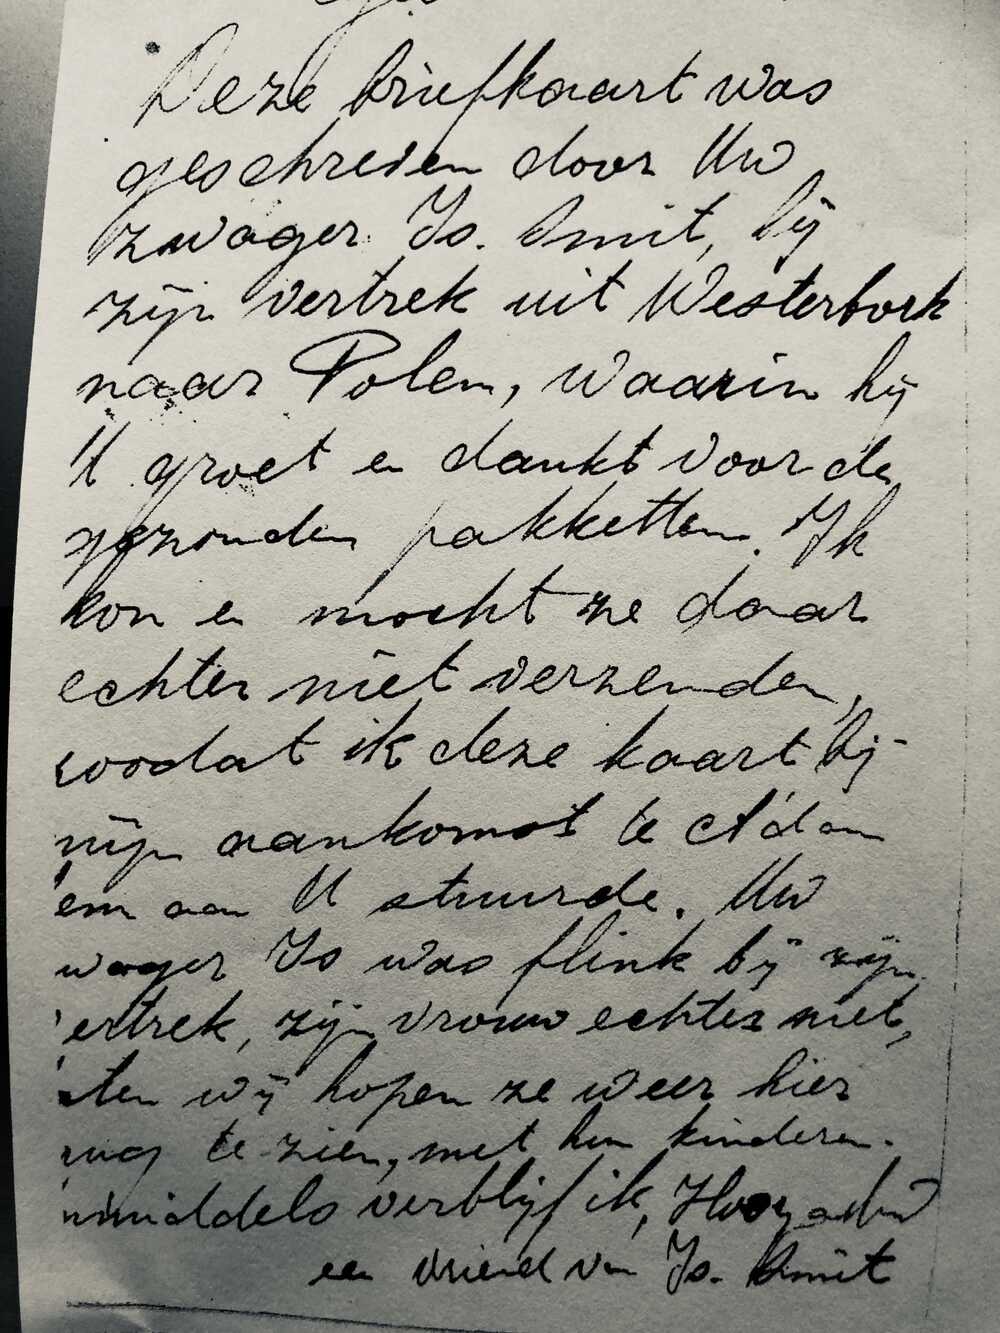 Deze briefkaart was
geschreven door Uw
zwager Is. Smit, bij
zijn vertrek uit Westerbork
naar Polen, waarin hij
U groet en dankt voor de
gezonden pakketten. Ik
kon en mocht ze daar
echter niet verzenden,
zoodat ik deze kaart bij
mijn aankomst te A'dam
em aan U stuurde. Uw
wager Is was flink bij zijn
ertrek, zijn vrouw echter niet,
ten wij hopen ze weer hier
rug te zien, met hun kinderen.
nmiddels verblijf ik,
een vriend van Is. Smit